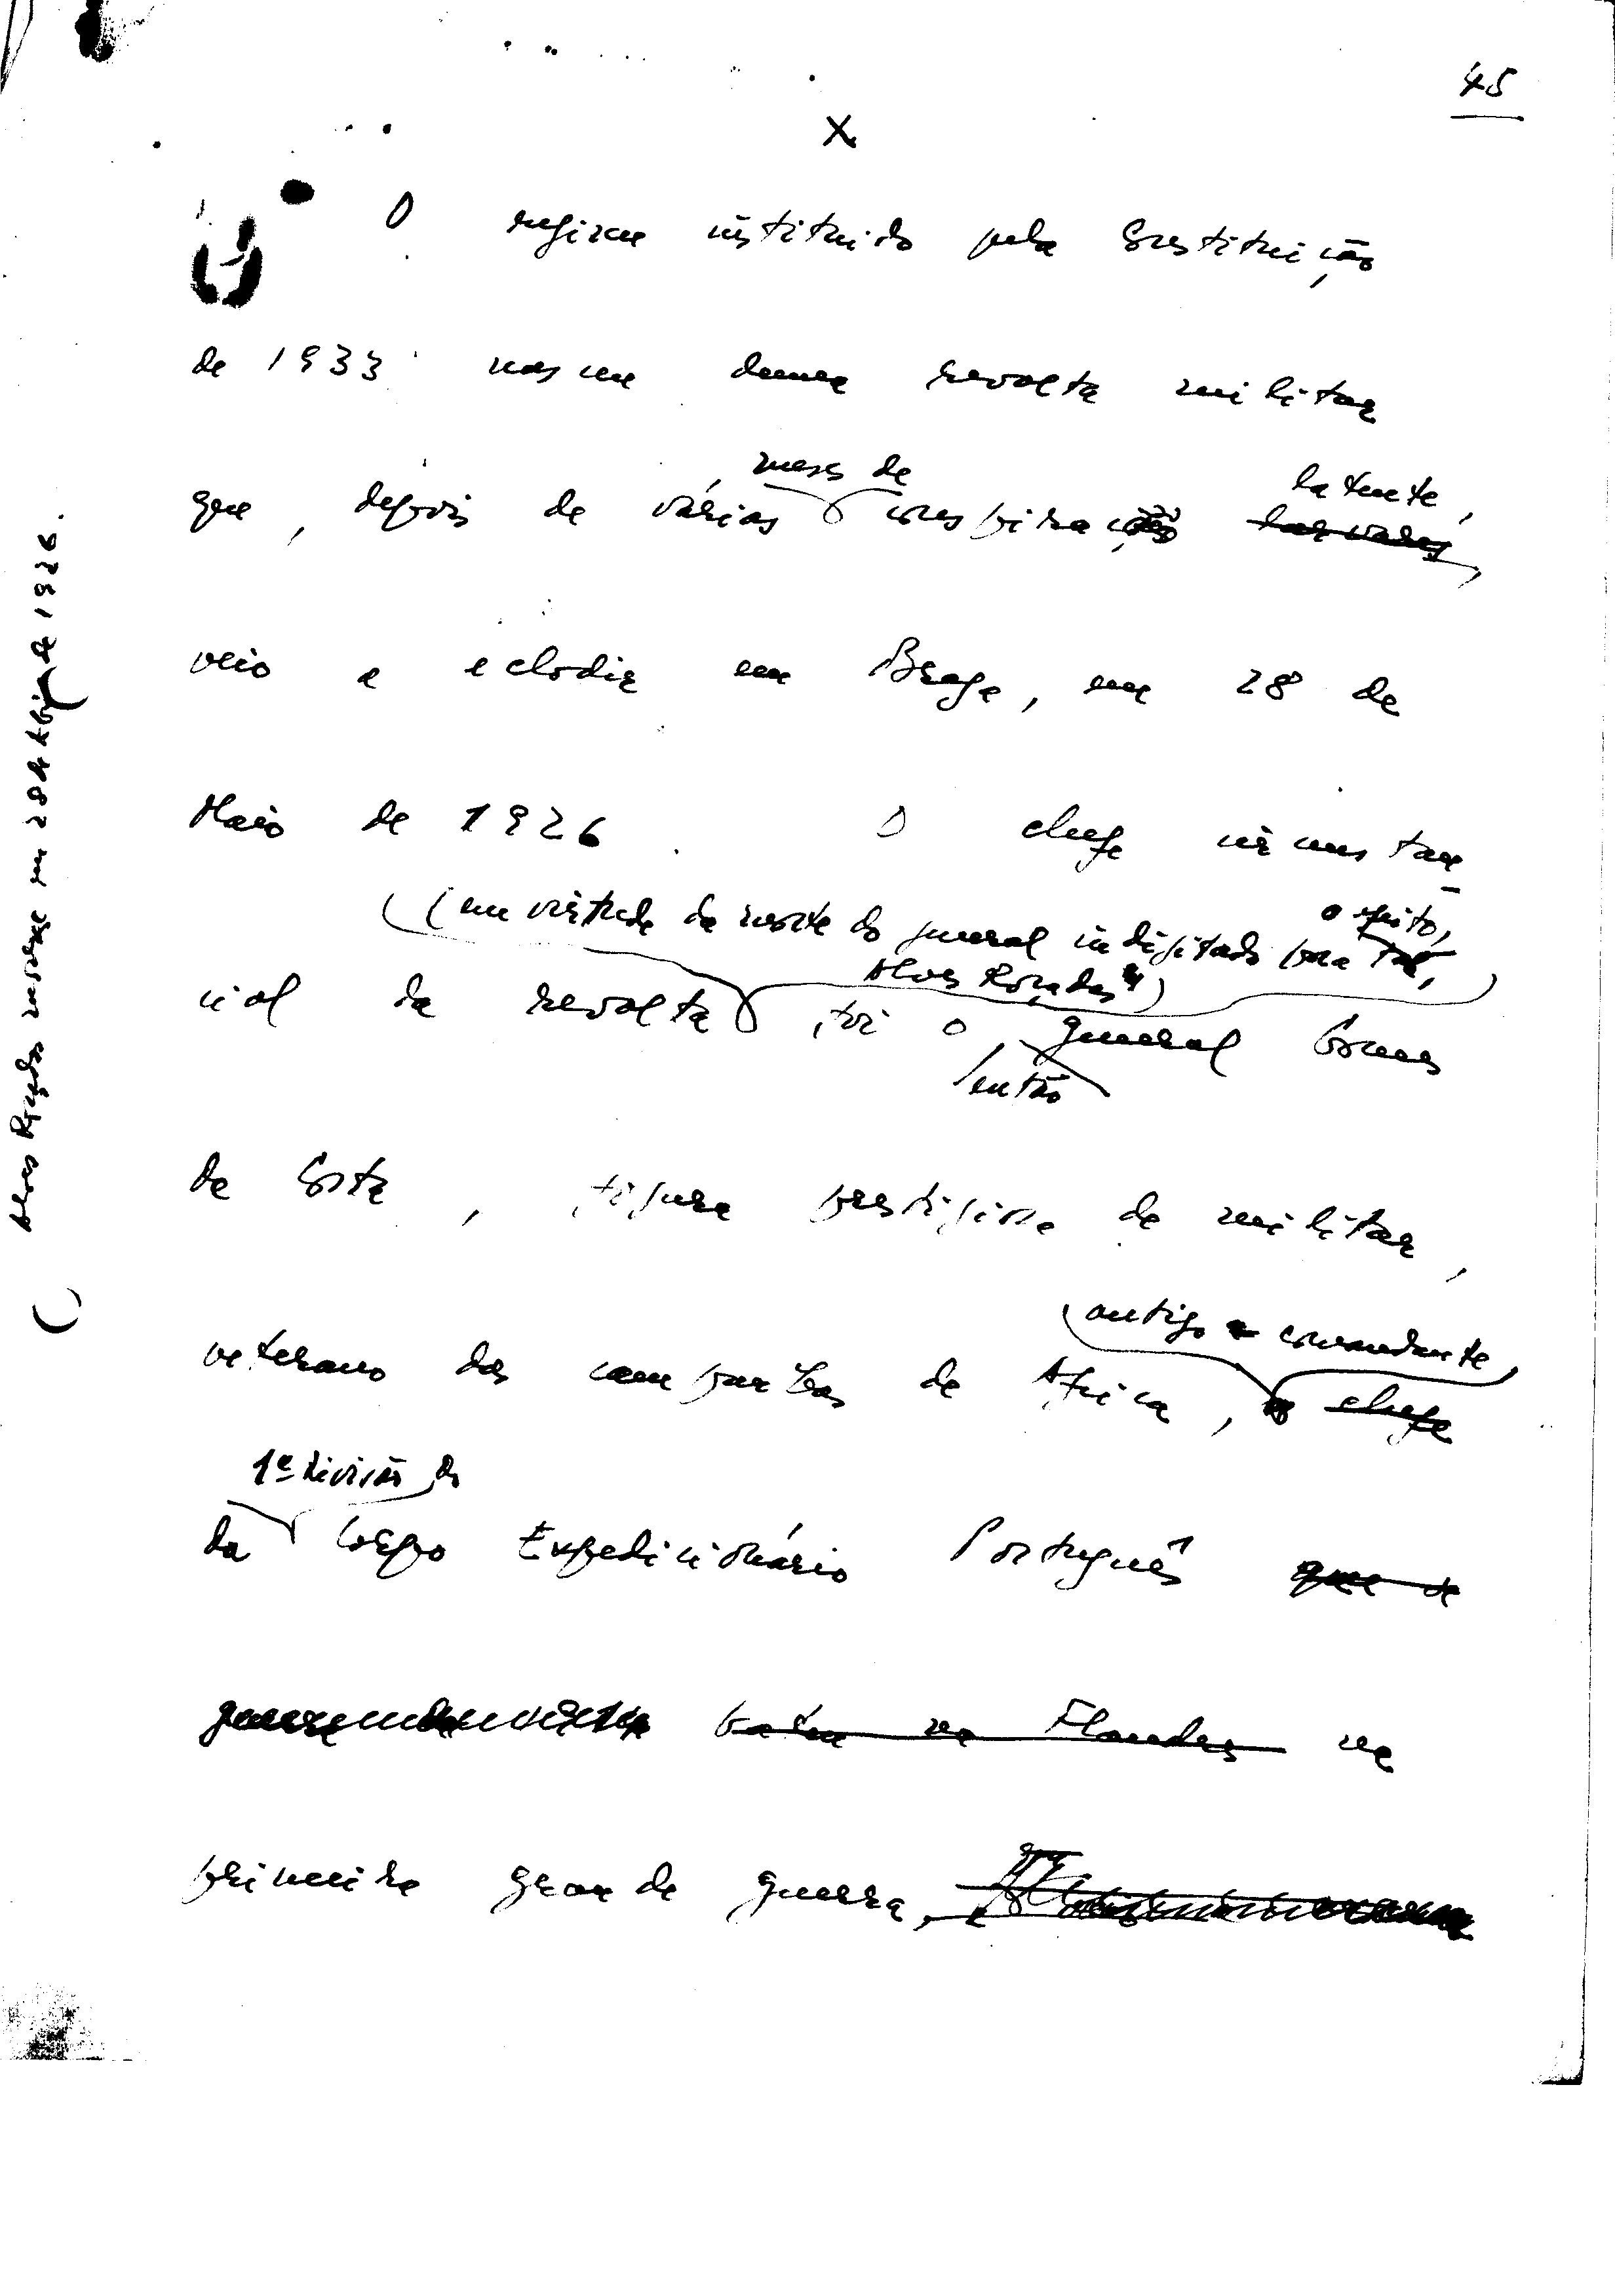 45
X
O regime instituido pela Constituição
de 1933 nasceu duma revolta militar
meses de latente,
que, depois de várias conspiração larvadas,
veio a eclodir em Braga, em 28 de
Maio de 1926. O chefe circunstan-
o efeito,
(em virtude da morte do general indigitado para tal,
Alves Roçadas)
cial da revolta, foi o general Gomes
então
da Costa, figura prestigiosa de militar,
antigo comandante
veterano das campanhas de Africa, chefe
1ª divisão do
da Corpo Expedicionário Português que se
bateu na Flandres na
primeira grande guerra, e
Alves Roçadas morreu em 28 de Abril de 1926.